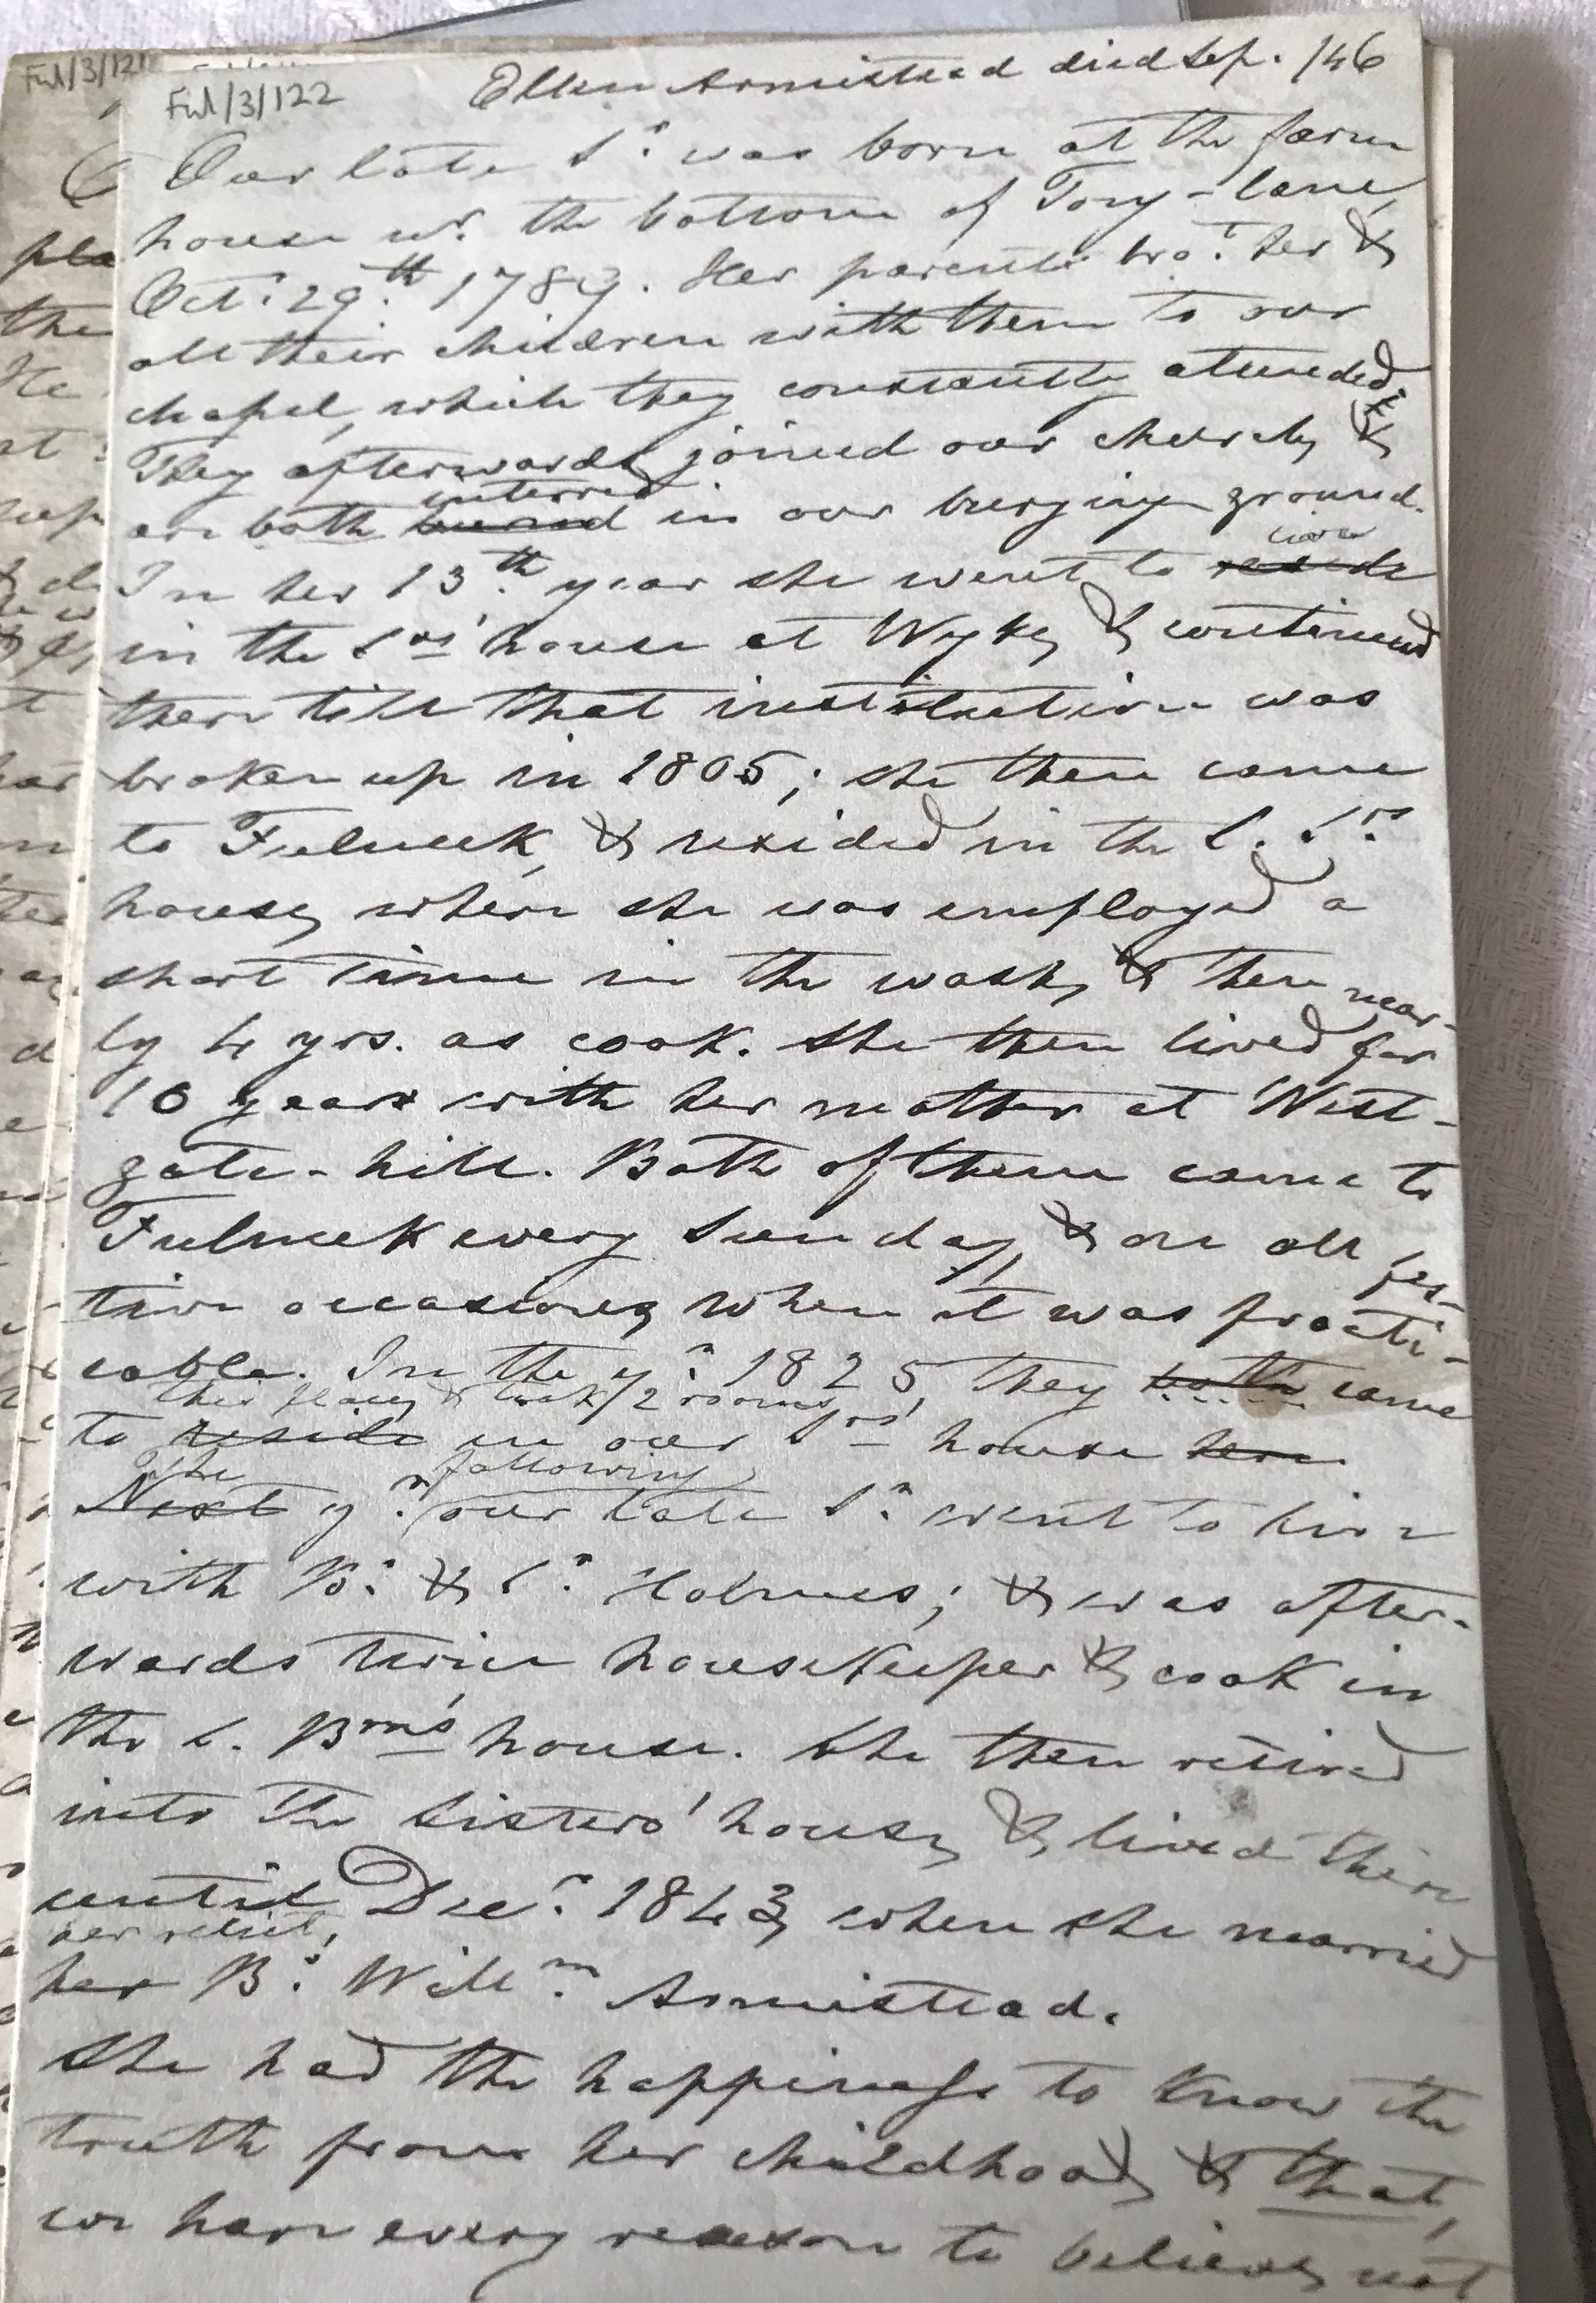 Ful/3/121
Ful/3/122
Ellen Armistead died Sep. /46
Our late Sr. was born at the farm
house nr. the bottom of Tory-lane,
Oct: 29th. 1789. Her parents bro't. her &
all their children with them to our
chapel, which they constantly attended.
They afterwards joined our church, &
are both interred
buried in our burying ground.
In her 13th. year she went to live
reside
in the Srs' house at Wyke, & continued
there till that institution was
broken up in 1805; she then came
to Fulneck, & resided in the S. Srs
house, where she was employed a
short time in the wash, & then near-
ly 4 yrs. as cook. She then lived for
10 years with her mother at West-
gate-hill. Both of them came to
Fulneck every Sunday, & on all fes-
tive occasions, when it was practi-
cable. In the yr. 1825 they both came
this place, & took 2 rooms
to reside in our Srs' house here.
The following
Next yr. our late Sr. went to live
with Br. & Sr. Holmes; & was after-
wards twice housekeeper & cook in
the S. Brn's house. She then retired
into the Sisters' house, & lived there
until Decr. 1843, when she married
her relict,
her Br. Willm. Armistead.
She had the happiness to know the
truth from her childhood, & that,
we have every reason to believe, not